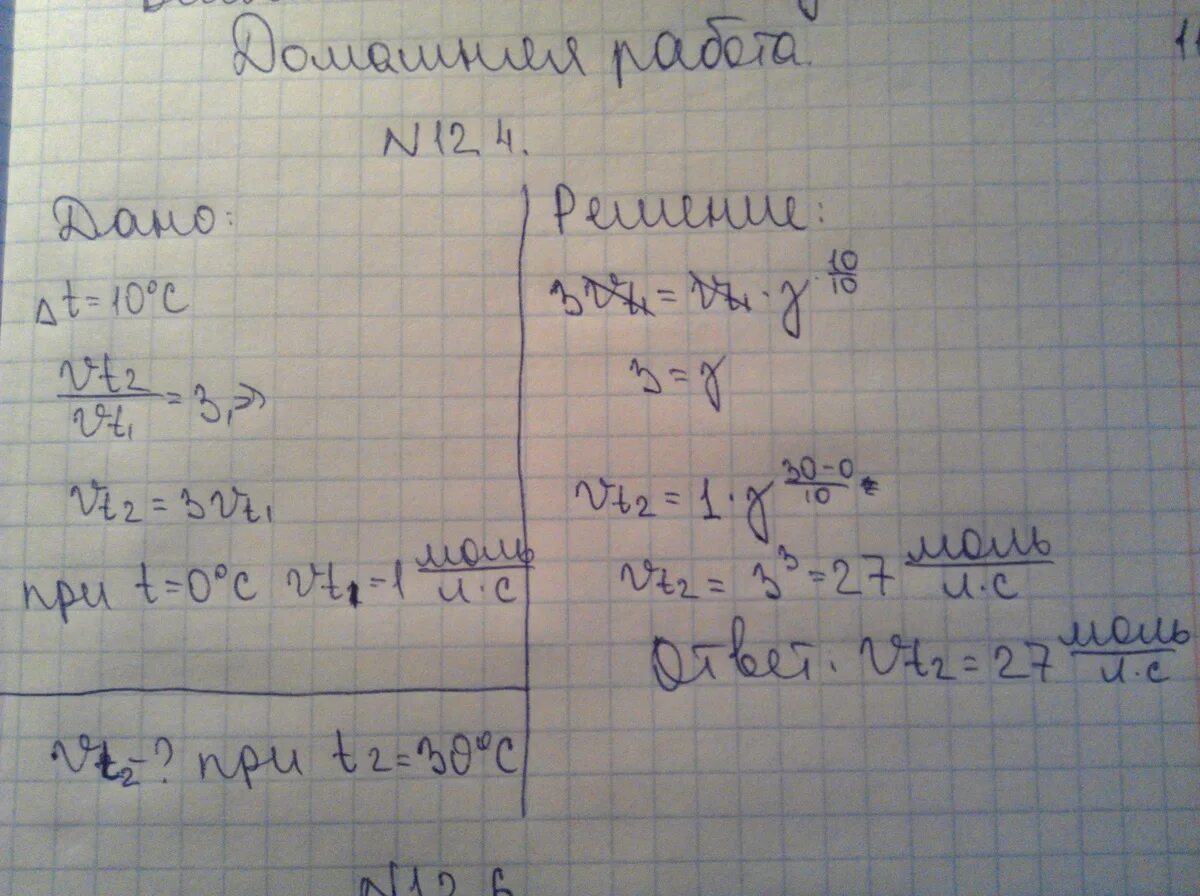 Домашняя работа.
N 12.4.
Дано:
Δt=10°C
Vt2/Vt1 = 3, =>
Vt2 = 3Vt1
при t=0°C Vt1=1 моль/л·с
Vt2-? при t2=30°C
Решение:
3Vt1 = Vt1 · γ^10/10
3 = γ
Vt2 = 1 · γ^(30-0)/10 =
Vt2 = 3^3 = 27 моль/л·с
Ответ: Vt2 = 27 моль/л·с